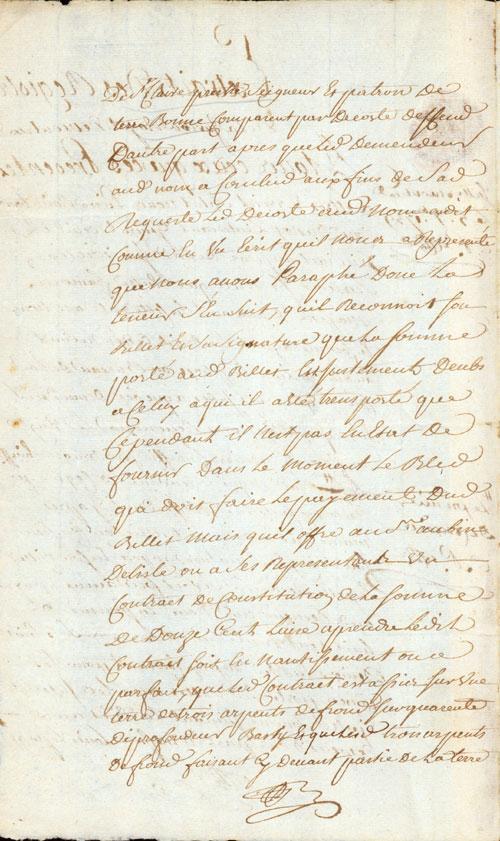 De St Claire prestre Seigneur Et patron De
terre Bonne Comparent par Decoste deffend
Dautre part apres que Led Demandeur
aud nom a Conclud aux fins de Sad
Requeste Led Decoste aud Nom a dit
Comme En un Ecrit quil nous a Represanté
que Nous avons Paraphé Donc La
teneur Sen Suit, quil Reconnoit Son
Billet Et Sa Signature que La Somme
porté aud Billet Est justement Deube
a Celuy a qui il a Esté transporté que
Cependant il Nest pas En Etat De
fournir Dans Le Moment Le Bled
qui doit faire Le payement Dud
Billet Mais quil offre au Sr aubin
Delisle ou a Ses Representants un
Contract De Constitution de La Somme
De Douze Cent Livres a prendre Ledit
Contract Soit En Nantissement ou a
parfait, que Led Contract est assis Sur une
terre de trois arpents de frond Sur quarente
de profondeur Basty Lesquels trois arpents
de frond faisant Cy devant partie de La terre